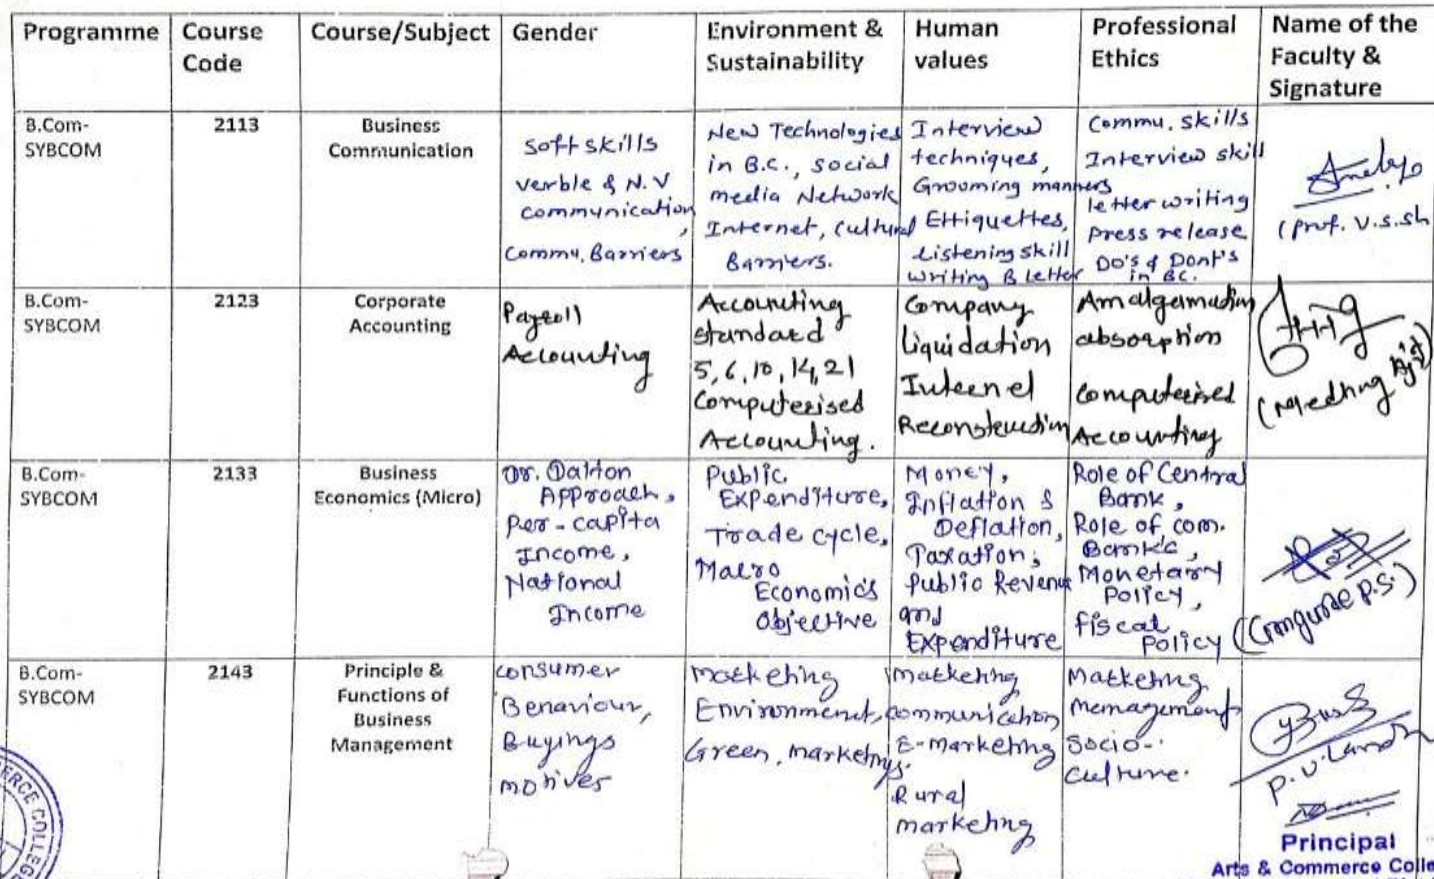 Programme Course Code Course/Subject Gender Environment & Sustainability Human values Professional Ethics Name of the Faculty & Signature
B.Com-
SYBCOM
2113
Business
Communication
Soft skills
verble & N.V
communication,
Commu. Barriers
New Technologies
in B.C., social
media Network
Internet, cultural
Barriers.
Interview
techniques,
Grooming manners
Ettiquettes,
Listening skill
writing B letter
Commu. skills
Interview skill
letter writing
press release
Do's & Dont's
in BC.
(prof. V.S.Sh
B.Com-
SYBCOM
2123
Corporate
Accounting
Payroll
Accounting
Accounting
standard
5, 6, 10, 14, 21
Computerised
Accounting.
Company
liquidation
Internel
Reconstruction
Amalgamation
absorption
Computerised
Accounting
B.Com-
SYBCOM
2133
Business
Economics (Micro)
Dr. Dalton
Approach,
Per-capita
Income,
National
Income
Public
Expenditure,
Trade cycle,
Macro
Economics
Objective
Money,
Inflation &
Deflation,
Taxation,
Public Revenue
and
Expenditure
Role of Central
Bank,
Role of com.
Bank's,
Monetary
Policy,
Fiscal
Policy
P.S.)
B.Com-
SYBCOM
2143
Principle &
Functions of
Business
Management
consumer
Benaviour,
Buyings
motives
marketing
Environmenet,
Green. marketings.
marketing
communication
E-marketing
Rural
marketing
Marketing
Memagement
Socio-
Culture.
P.V.
ERCE COLLEGE
Principal
Arts & Commerce Colle